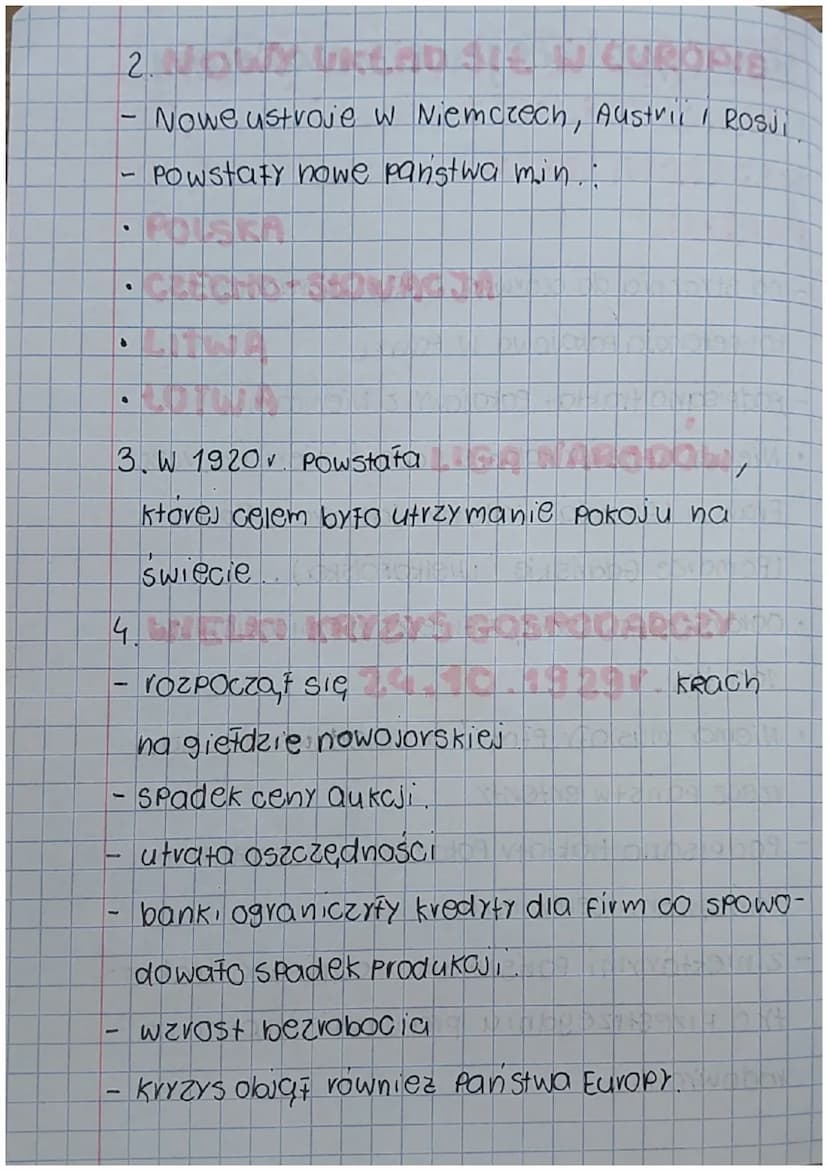 2. NOWY UKŁAD SIŁ W EUROPIE
- Nowe ustroje w Niemczech, Austrii i Rosji.
- Powstały nowe państwa min.:
• POLSKA
• CZECHO-SŁOWACJA
• LITWA
• ŁOTWA
3. W 1920 r. Powstała LIGA NARODÓW,
której celem było utrzymanie pokoju na
świecie.
4. WIELKI KRYZYS GOSPODARCZY
- rozpoczął się 24.10.1929r. krach
na giełdzie nowojorskiej
- spadek ceny aukcji.
- utrata oszczędności
- banki ograniczyły kredyty dla firm co spowo-
dowało spadek produkcji.
- wzrost bezrobocia
- kryzys objął równiez państwa Europy.